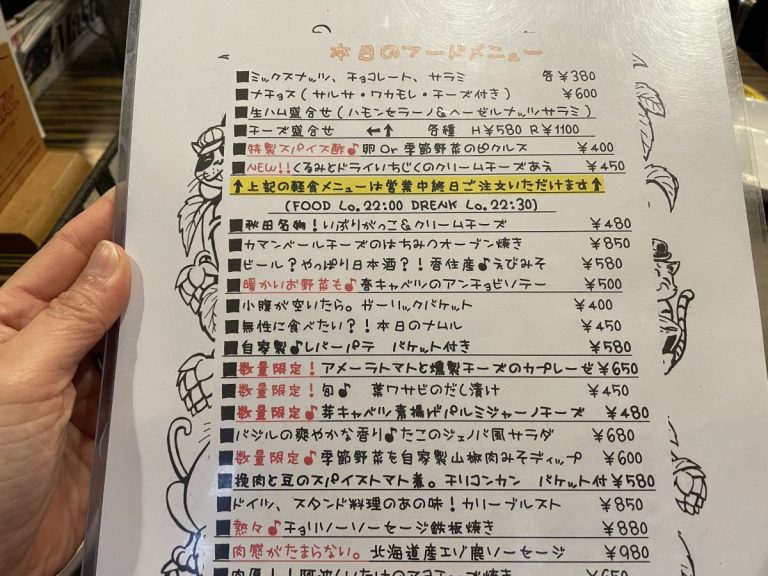 本日のフードメニュー
■ミックスナッツ、チョコレート、サラミ 各¥380
■ナチョス(サルサ・ワカモレ・チーズ付き) ¥600
■生ハム盛合せ(ハモンセラーノ&ヘーゼルナッツサラミ)
■チーズ盛合せ ←↑ 各種 H¥580 R¥1100
■特製スパイス酢♪卵Or季節野菜のピクルス ¥400
■NEW!!くるみとドライいちじくのクリームチーズあえ ¥450
↑上記の軽食メニューは営業中終日ご注文いただけます↑
(FOOD Lo.22:00 DRENK Lo.22:30)
■秋田名物!いぶりがっこ&クリームチーズ ¥480
■カマンベールチーズのはちみつオーブン焼き ¥850
■ビール?やっぱり日本酒?!香住産♪えびみそ ¥580
■暖かいお野菜も♪春キャベツのアンチョビソテー ¥500
■小腹が空いたら。ガーリックバケット ¥400
■無性に食べたい?!本日のナムル ¥450
■自家製♪レバーパテ バケット付き ¥580
■数量限定!アメーラトマトと燻製チーズのカプレーゼ¥650
■数量限定!旬♪ 葉ワサビのだし漬け ¥450
■数量限定♪芽キャベツ素揚げパルミジャーノチーズ ¥480
■バジルの爽やかな香り♪たこのジェノバ風サラダ ¥680
■数量限定♪季節野菜を自家製山椒肉みそディップ ¥600
■挽肉と豆のスパイストマト煮。チリコンカン バケット付¥580
■ドイツ、スタンド料理のあの味!カリーブルスト ¥850
■熱々♪チョリソーソーセージ鉄板焼き ¥880
■肉感がたまらない。北海道産エゾ鹿ソーセージ ¥980